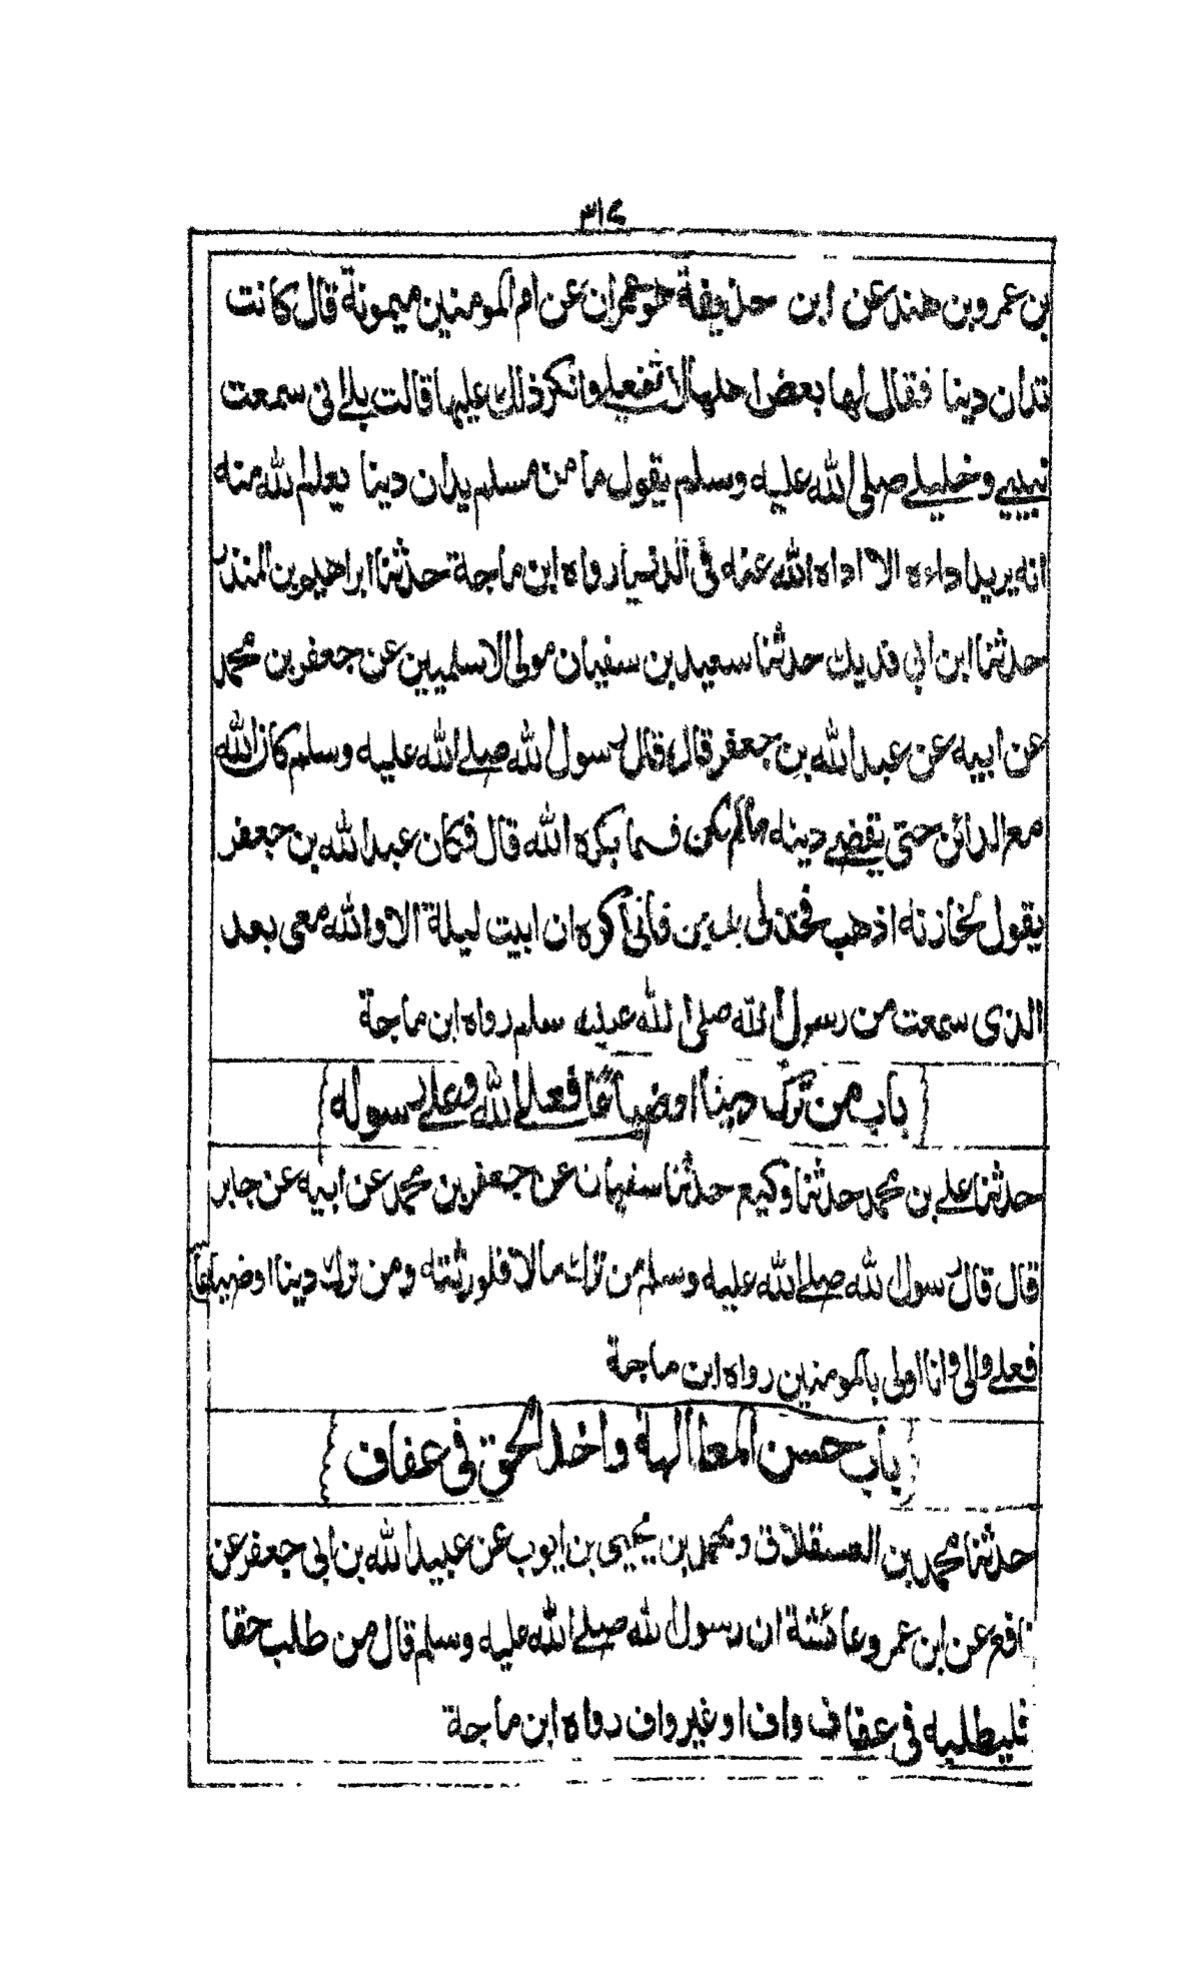 بن عمرو بن هند عن ابن حذيفة هو عمران عن ام المومنين ميمونة قال كانت
تدان دينا فقال لها بعض اهلها لا تفعلي وانكر ذلك عليها قالت بلے اني سمعت
نبيي وخليلے صلى الله عليه وسلم يقول ما من مسلم يدان دينا يعلم الله منه
انه يريد اداءه الا اداه الله عنه في الدنيا رواه ابن ماجة حدثنا ابراهيم بن المنذر
حدثنا ابن ابي فديك حدثنا سعيد بن سفيان مولى الاسلميين عن جعفر بن محمد
عن ابيه عن عبد الله بن جعفر قال قال رسول الله صلے الله عليه وسلم كان الله
مع الدائن حتى يقضے دينه مالم يكن فيما يكره الله قال فكان عبد الله بن جعفر
يقول لخازنه اذهب فخذ لي بدين فأني اكره ان ابيت ليلة الا والله معي بعد
الذي سمعت من رسول الله صلى الله عليه سلم رواه ابن ماجة
باب من ترك دينا او ضياعا فعلے الله وعلے رسوله
حدثنا علے بن محمد حدثنا وكيع حدثنا سفيان عن جعفر بن محمد عن ابيه عن جابر
قال قال رسول الله صلے الله عليه وسلم من ترك مالا فلورثته ومن ترك دينا او ضياعا
فعلے والي وانا اولى بالمومنين رواه ابن ماجة
باب حسن المطالبة واخذ الحق في عفاف
حدثنا محمد بن العسقلاني ومحمد بن يحيى بن ايوب عن عبيد الله بن ابي جعفر عن
نافع عن ابن عمر وعائشة ان رسول الله صلے الله عليه وسلم قال من طلب حقا
فليطلبه في عفاف واف او غير واف رواه ابن ماجة